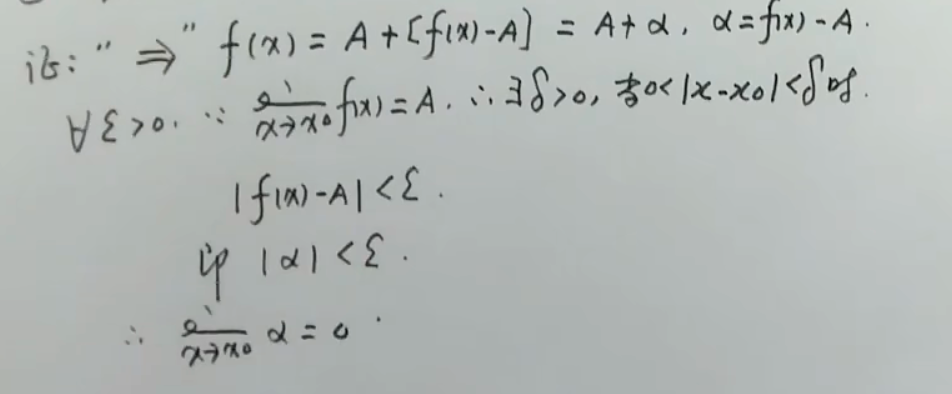 证："⇒" f(x) = A + [f(x) - A] = A + α, α = f(x) - A.
∀ε>0. ∵ lim x→x0 f(x) = A. ∴ ∃δ>0, 当0<|x-x0|<δ时.
|f(x)-A|<ε.
即 |α|<ε.
∴ lim x→x0 α = 0.